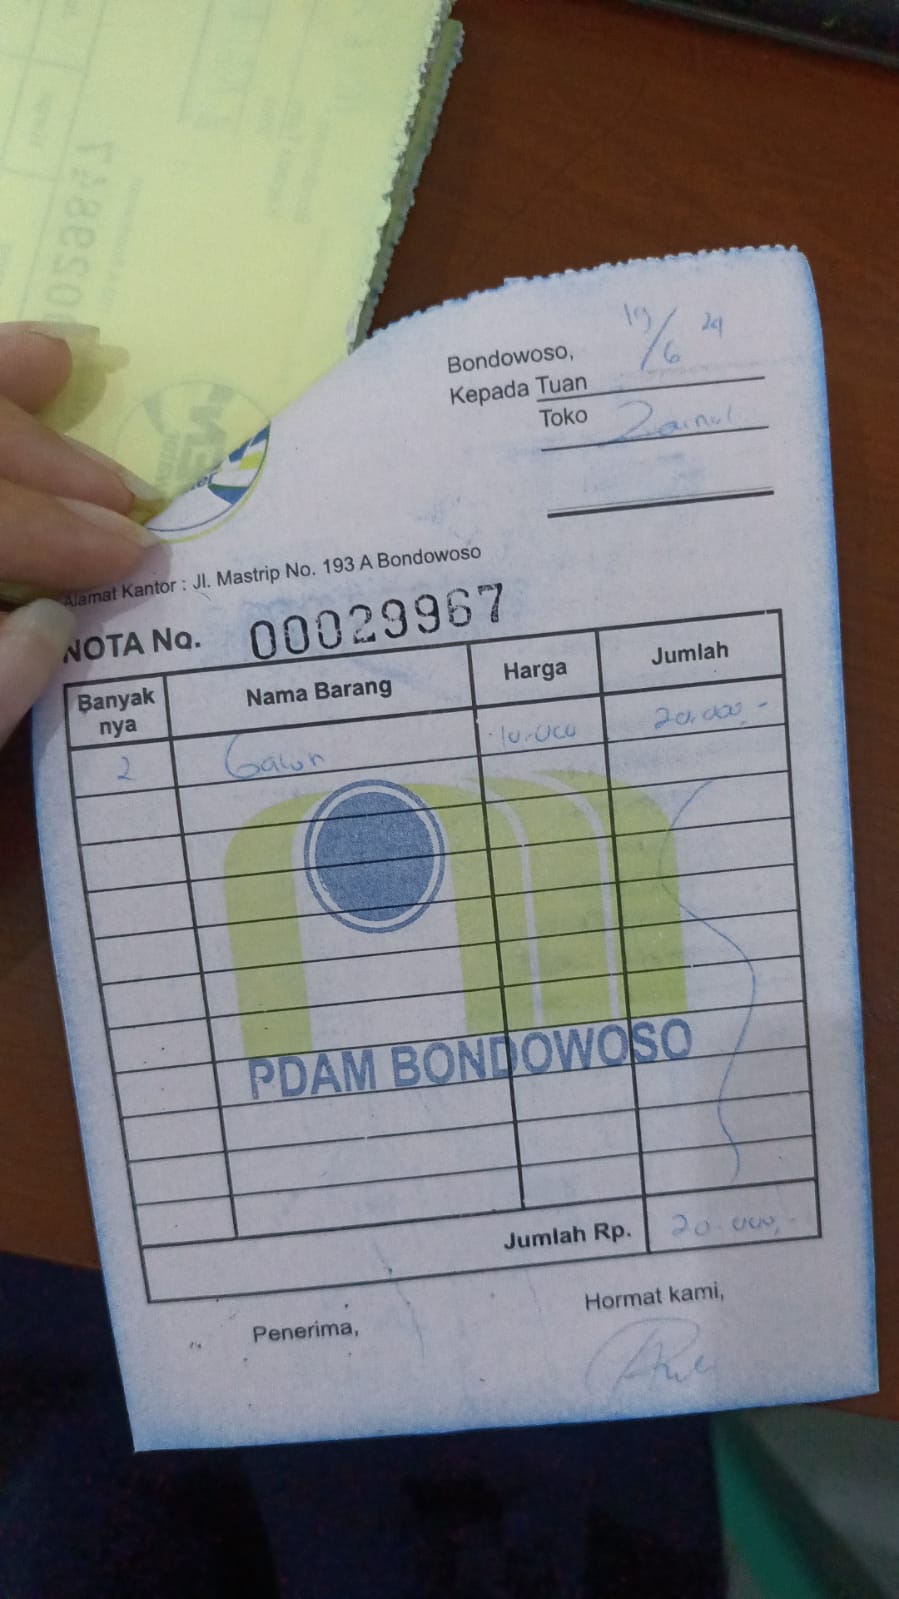 Bondowoso, 19/6 24
Kepada Tuan
Toko Zainul
Alamat Kantor : Jl. Mastrip No. 193 A Bondowoso
NOTA No. 00029967
Banyak nya Nama Barang Harga Jumlah
2 Galon 10.000 20.000,-
PDAM BONDOWOSO
Jumlah Rp. 20.000,-
Penerima,
Hormat kami,